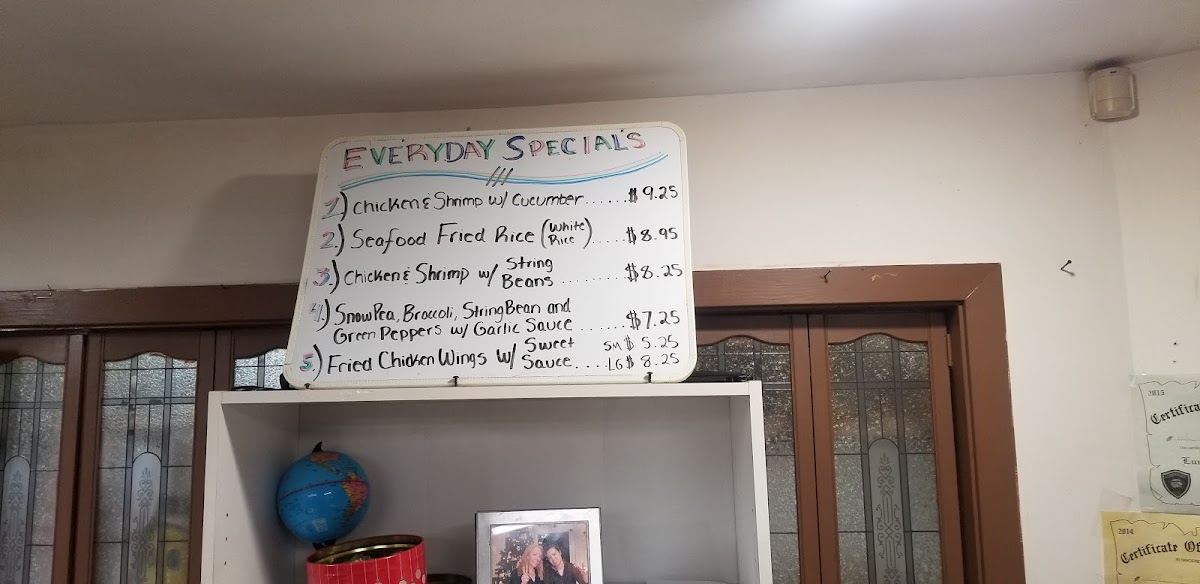 EVERYDAY SPECIAL'S
1.) Chicken & Shrimp w/ Cucumber......$9.25
2.) Seafood Fried Rice (White Rice).....$8.95
3.) Chicken & Shrimp w/ String Beans.......$8.25
4.) Snow Pea, Broccoli, String Bean and
Green Peppers w/ Garlic Sauce......$7.25
5.) Fried Chicken Wings w/ Sweet Sauce....SM $5.25
LG $8.25
2015
2014
Certificate Of